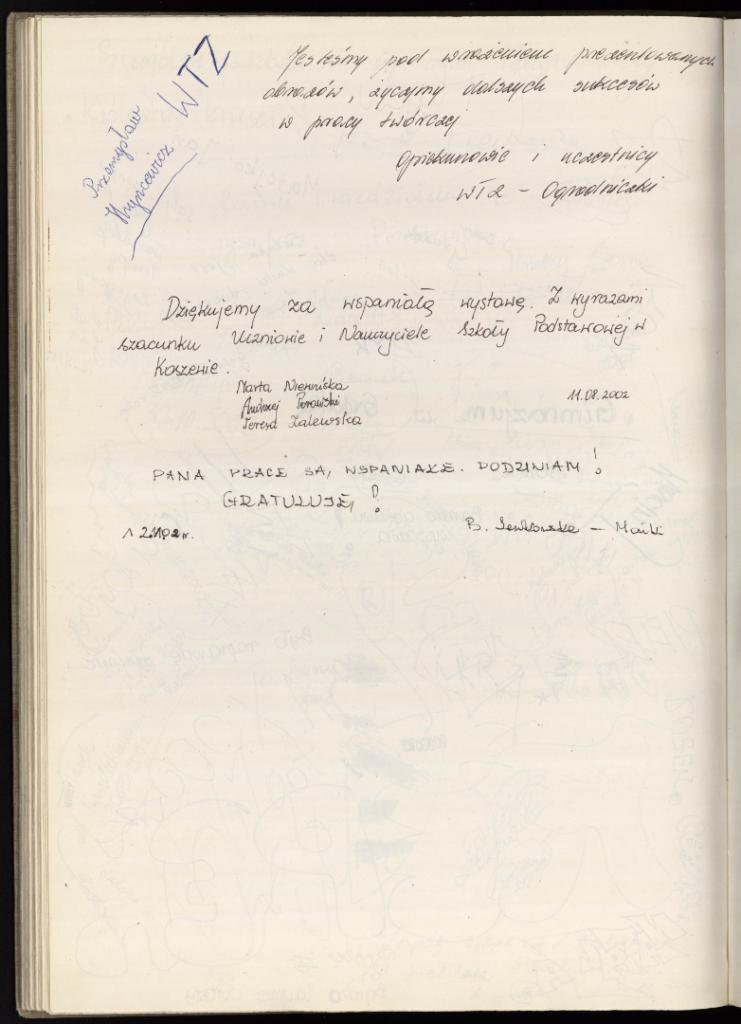 WTZ
Przemysław
Jesteśmy pod wrażeniem prezentowanych
obrazów, życzymy dalszych sukcesów
w pracy twórczej
Opiekunowie i uczestnicy
WTZ - Ogrodniczki
Dziękujemy za wspaniałą wystawę. Z wyrazami
szacunku Uczniowie i Nauczyciele Szkoły Podstawowej w
Koszenie.
Marta
Andrzej
Teresa Zalewska
11.08.2002
PANA PRACE SĄ WSPANIAŁE. PODZIWIAM!
GRATULUJĘ!
B.